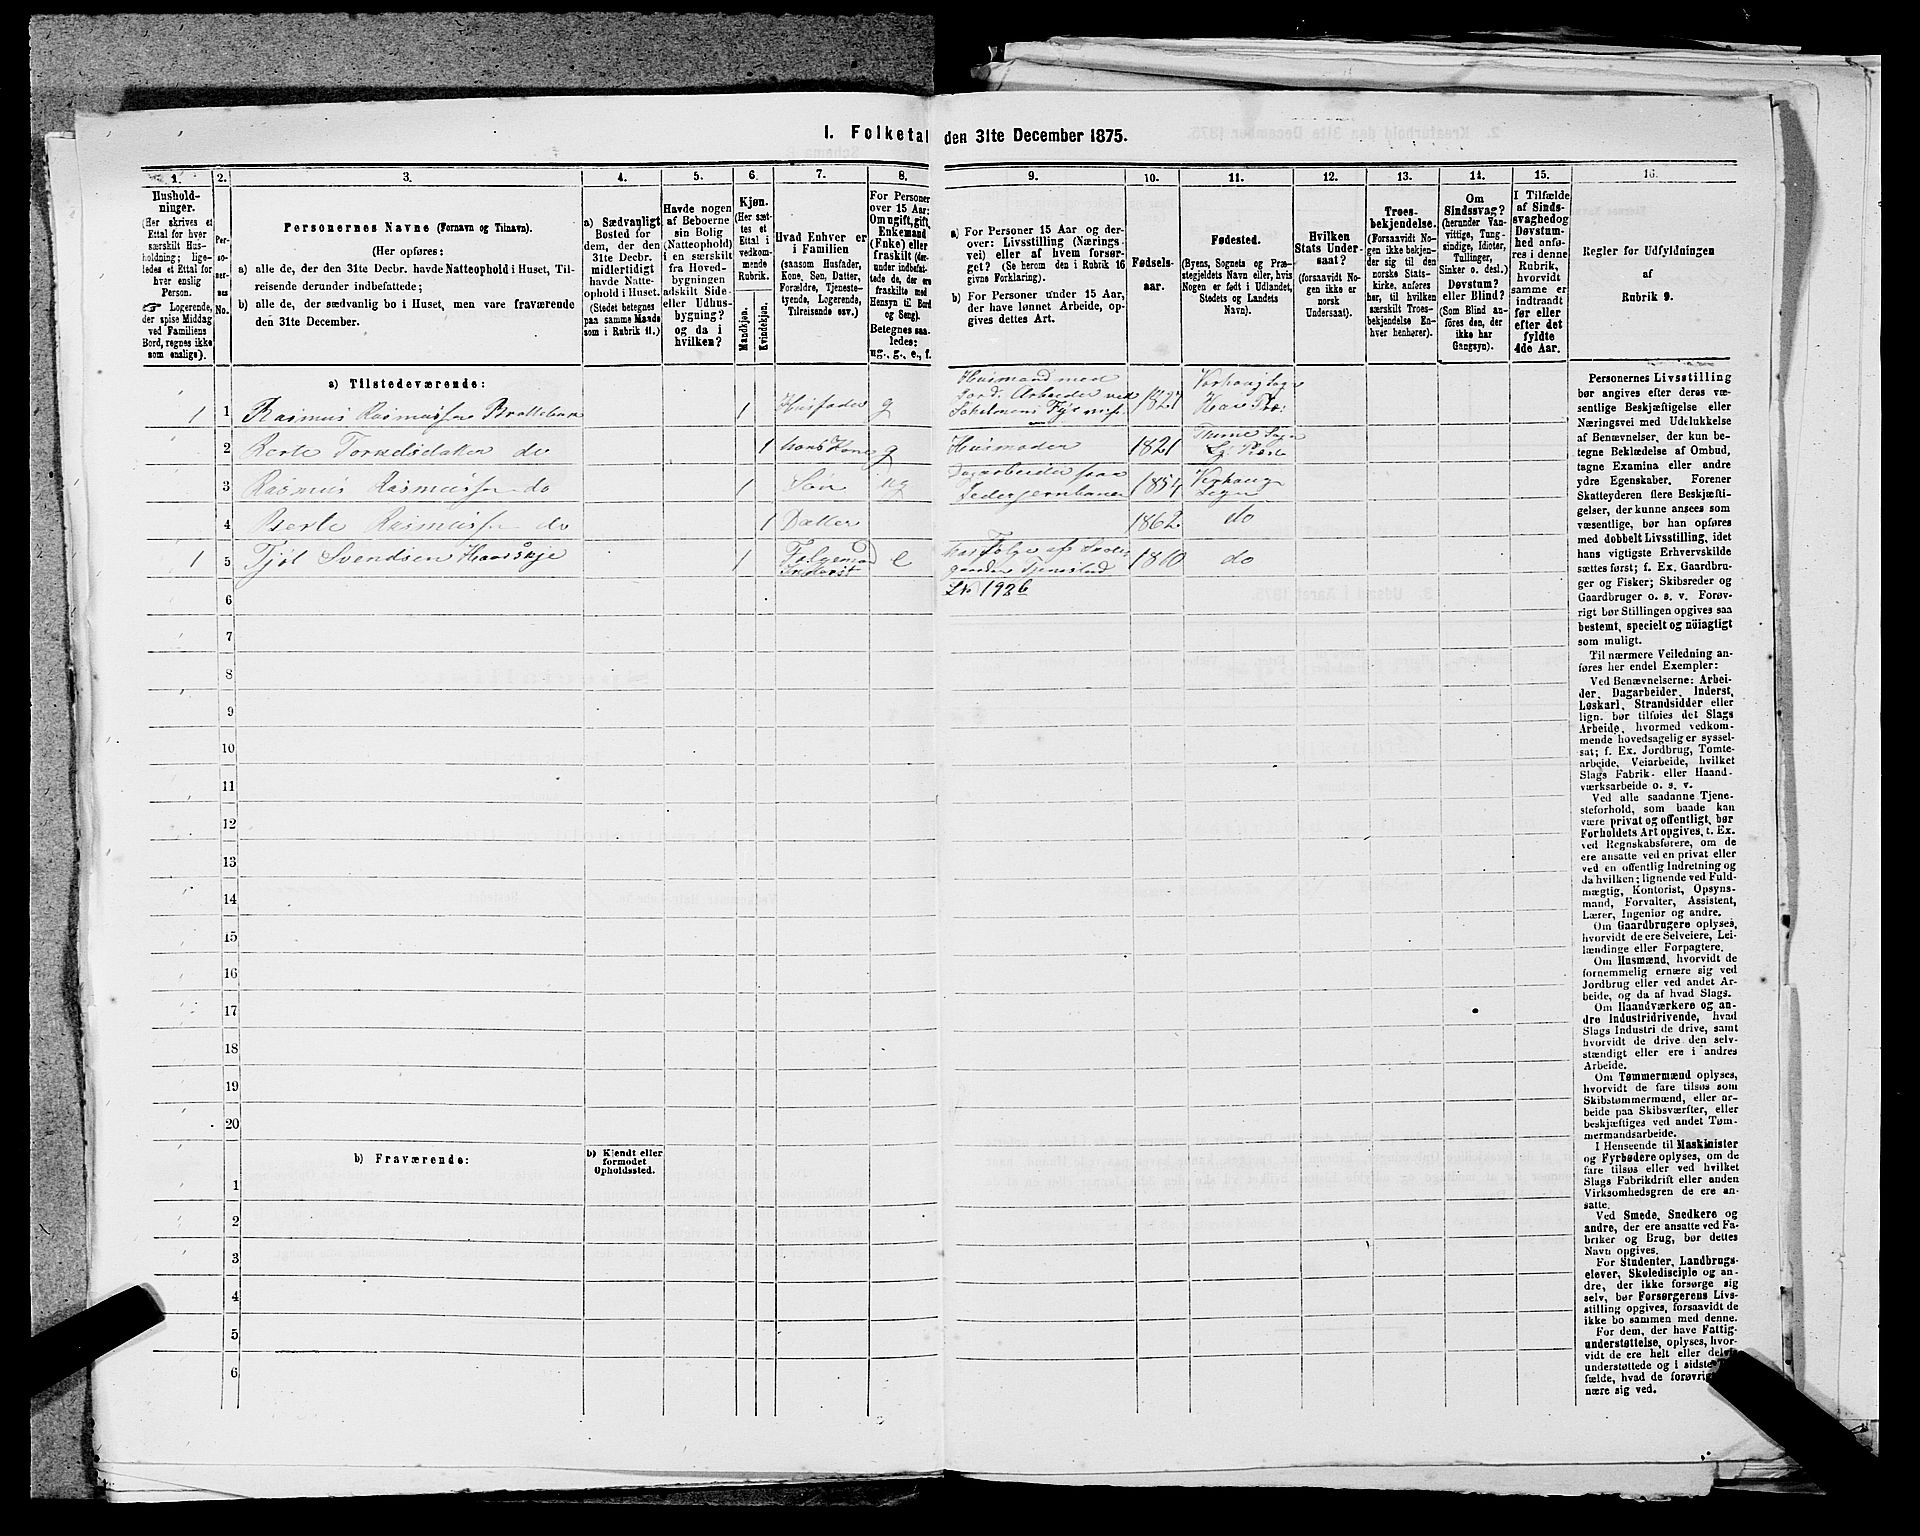 1. Folketal den 31te December 1875.
1.
Hushold-
ninger.
(Her skrives et
Ettal for hver
særskilt Hus-
holdning; lige-
ledes et Ettal for
hver enslig
Person.
☞ Logerende,
der spise Middag
ved Familiens
Bord, regnes ikke
som enslige).
2.
Per-
so-
ner-
nes
No.
3.
Personernes Navne (Fornavn og Tilnavn).
(Her opføres:
a) alle de, der den 31te Decbr. havde Natteophold i Huset, Til-
reisende derunder indbefattede;
b) alle de, der sædvanlig bo i Huset, men vare fraværende
den 31te December.
4.
a) Sædvanligt
Bosted for
dem, der den
31te Decbr.
midlertidigt
havde Natte-
ophold i Huset.
(Stedet betegnes
paa samme Maade
som i Rubrik 11.)
5.
Havde nogen
af Beboerne
sin Bolig
(Natteophold)
i en særskilt
fra Hoved-
bygningen
adskilt Side-
eller Udhus-
bygning?
og da i
hvilken?
6.
Kjøn.
(Her sæt-
tes et
Ettal i
vedkom-
mende
Rubrik.
Mandkjøn.
Kvindekjøn.
7.
Hvad Enhver er
i Familien
(saasom Husfader,
Kone, Søn, Datter,
Forældre, Tjeneste-
tyende, Logerende,
Tilreisende osv.)
8.
For Personer
over 15 Aar:
Om ugift, gift,
Enkemand
(Enke) eller
fraskilt (der-
under indbefat-
tede de, der ere
fraskilte med
Hensyn til Bord
og Seng).
Betegnes saa-
ledes:
ug., g., e., f.
9.
a) For Personer 15 Aar og der-
over: Livsstilling (Nærings-
vei) eller af hvem forsør-
get? (Se herom den i Rubrik 16
givne Forklaring).
b) For Personer under 15 Aar,
der have lønnet Arbeide, op-
gives dettes Art.
10.
Fødsels-
aar.
11.
Fødested.
(Byens, Sognets og Præ-
stegjeldets Navn eller, hvis
Nogen er født i Udlandet,
Stedets og Landets
Navn).
12.
Hvilken
Stats Under-
saat?
(forsaavidt No-
gen ikke er
norsk
Undersaat).
13.
Troes-
bekjendelse.
(Forsaavidt No-
gen ikke bekjen-
der sig til den
norske Stats-
kirke, anføres
her, til hvilken
særskilt Troes-
bekjendelse En-
hver henhører).
14.
Om
Sindssvag?
(herunder Van-
vittige, Tung-
sindige, Idioter,
Tullinger,
Sinker o. desl.)
Døvstum?
eller Blind?
(Som Blind an-
føres den, der
ikke har
Gangsyn).
15.
I Tilfælde
af Sinds-
svaghed og
Døvstum-
hed anfø-
res i denne
Rubrik,
hvorvidt
samme er
indtraadt
før eller
efter det
fyldte
4de Aar.
16.
Regler for Udfyldningen
af
Rubrik 9.
a) Tilstedeværende:
1 1 Rasmus Rasmussen 1 Husfader g Husmand med Jord. Arbeider ved 1821 Varhaug Sogn
2 Berte do 1 hans Kone g Husmoder 1821 Thime Sogn
3 Rasmus Rasmussen do 1 Søn ug Dagarbeider paa Jederjernbanen 1854 Verhaug Sogn
4 Berte Rasmussen do 1 Datter 1862 do
1 5 Svendsen 1 e har Følge af 1810 do
6 Lo 1926
7
8
9
10
11
12
13
14
15
16
17
18
19
20
b) Fraværende:
b) Kjendt eller
formodet
Opholdssted.
1
2
3
4
5
6
Personernes Livsstilling
bør angives efter deres væ-
sentlige Beskjæftigelse eller
Næringsvei med Udelukkelse
af Benævnelser, der kun be-
tegne Beklædelse af Ombud,
tagne Examina eller andre
ydre Egenskaber. Forener
Skatteyderen flere Beskjæfti-
gelser, der kunne ansees som
væsentlige, bør han opføres
med dobbelt Livsstilling, idet
hans vigtigste Erhvervskilde
sættes først; f. Ex. Gaardbru-
ger og Fisker; Skibsreder og
Gaardbruger o. s. v. Forøv-
rigt bør Stillingen opgives saa
bestemt, specielt og nöiagtigt
som muligt.
Til nærmere Veiledning an-
føres her endel Exempler:
Ved Benævnelserne: Arbei-
der, Dagarbeider, Inderst,
Løskarl, Strandsidder eller
lign. bør tilføies det Slags
Arbeide, hvormed vedkom-
mende hovedsagelig er syssel-
sat; f. Ex. Jordbrug, Tomte-
arbeide, Veiarbeide, hvilket
Slags Fabrik- eller Haand-
værksarbeide o. s. v.
Ved alle saadanne Tjene-
steforhold, som baade kan
være privat og offentligt, bør
Forholdets Art opgives, t. Ex.
ved Regnskabsførere, om de
ere ansatte ved en privat eller
ved en offentlig Indretning og
da hvilken; lignende ved Fuld-
mægtig, Kontorist, Opsyns-
mand, Forvalter, Assistent,
Lærer, Ingeniør og andre.
Om Gaardbrugere oplyses,
hvorvidt de ere Selveiere, Lei-
lændinge eller Forpagtere.
Om Husmænd, hvorvidt de
fornemmelig ernære sig ved
Jordbrug eller ved andet Ar-
beide, og da af hvad Slags.
Om Haandværkere og an-
dre Industridrivende, hvad
Slags Industri de drive, samt
hvorvidt de drive den selv-
stændigt eller ere i andres
Arbeide.
Om Tømmermænd oplyses,
hvorvidt de fare tilsøs som
Skibstømmermænd, eller ar-
beide paa Skibsværfter, eller
beskjæftiges ved andet Tøm-
mermandsarbeide.
I Henseende til Maskinister
og Fyrbødere oplyses, om de
fare tilsøs eller ved hvilket
Slags Fabrikdrift eller anden
Virksomhedsgren de ere an-
satte.
Ved Smede, Snedkere og
andre, der ere ansatte ved Fa-
briker og Brug, bør dettes
Navn opgives.
For Studenter, Landbrugs-
elever, Skoledisciple og an-
dre, der ikke forsørge sig
selv, bør Forsørgerens Livs-
stilling opgives, forsaavidt de
ikke bo sammen med denne.
For dem, der have Fattig-
understøttelse, oplyses, hvor-
vidt de ere helt eller delvis
understøttede og i sidste
fælde, hvad de forøvrig
nære sig ved.